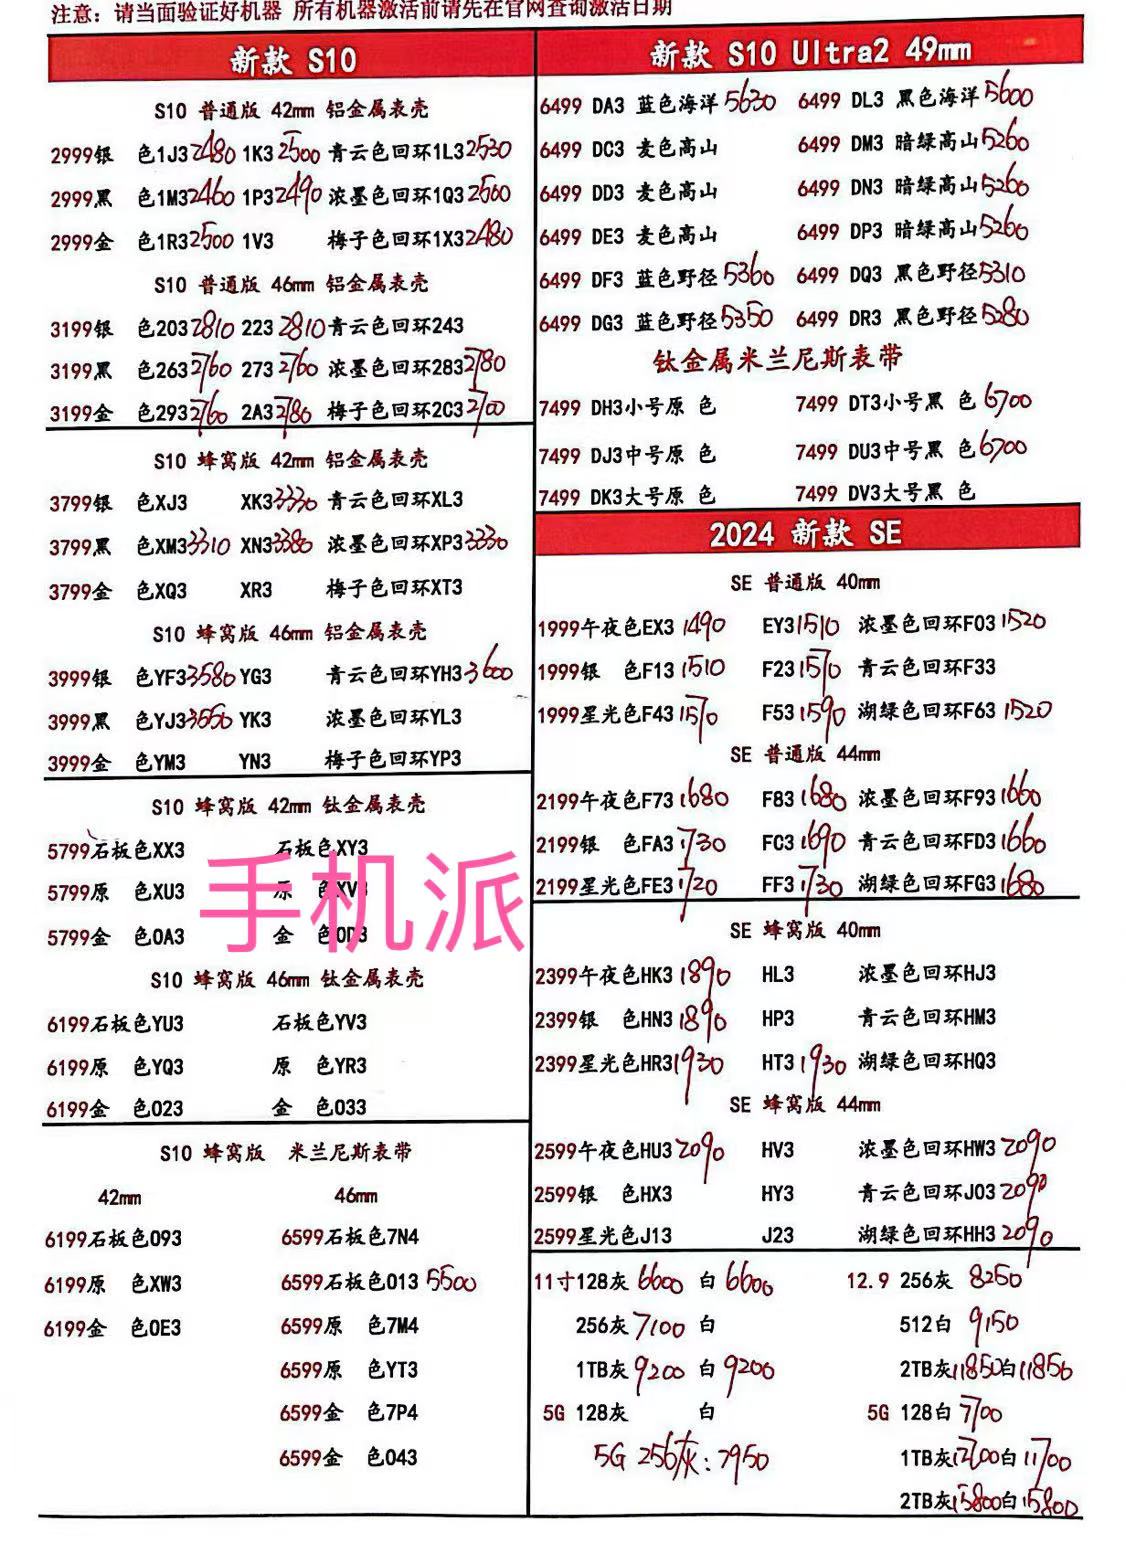 注意：请当面验证好机器 所有机器激活前请先在官网查询激活日期
新款 S10
S10 普通版 42mm 铝金属表壳
2999银 色1J3 2480 1K3 2500 青云色回环1L3 2530
2999黑 色1M3 2460 1P3 2490 浓墨色回环1Q3 2500
2999金 色1R3 2500 1V3 梅子色回环1X3 2480
S10 普通版 46mm 铝金属表壳
3199银 色203 2810 223 2810 青云色回环243
3199黑 色263 2760 273 2760 浓墨色回环283 2780
3199金 色293 2760 2A3 2780 梅子色回环2C3 2700
S10 蜂窝版 42mm 铝金属表壳
3799银 色XJ3 XK3 3330 青云色回环XL3
3799黑 色XM3 3310 XN3 3380 浓墨色回环XP3 3330
3799金 色XQ3 XR3 梅子色回环XT3
S10 蜂窝版 46mm 铝金属表壳
3999银 色YF3 3580 YG3 青云色回环YH3 3600
3999黑 色YJ3 3550 YK3 浓墨色回环YL3
3999金 色YM3 YN3 梅子色回环YP3
S10 蜂窝版 42mm 钛金属表壳
5799石板色XX3 石板色XY3
5799原 色XU3 原 色XV3
5799金 色0A3 金 色0D3
手机派
S10 蜂窝版 46mm 钛金属表壳
6199石板色YU3 石板色YV3
6199原 色YQ3 原 色YR3
6199金 色023 金 色033
S10 蜂窝版 米兰尼斯表带
42mm 46mm
6199石板色093 6599石板色7N4
6199原 色XW3 6599石板色013 5500
6199金 色0E3 6599原 色7M4
6599原 色YT3
6599金 色7P4
6599金 色043
新款 S10 Ultra2 49mm
6499 DA3 蓝色海洋 5630 6499 DL3 黑色海洋 5600
6499 DC3 麦色高山 6499 DM3 暗绿高山 5260
6499 DD3 麦色高山 6499 DN3 暗绿高山 5260
6499 DE3 麦色高山 6499 DP3 暗绿高山 5260
6499 DF3 蓝色野径 5360 6499 DQ3 黑色野径 5310
6499 DG3 蓝色野径 5350 6499 DR3 黑色野径 5280
钛金属米兰尼斯表带
7499 DH3小号原 色 7499 DT3小号黑 色 6700
7499 DJ3中号原 色 7499 DU3中号黑 色 6700
7499 DK3大号原 色 7499 DV3大号黑 色
2024 新款 SE
SE 普通版 40mm
1999午夜色EX3 1490 EY3 1510 浓墨色回环F03 1520
1999银 色F13 1510 F23 1570 青云色回环F33
1999星光色F43 1570 F53 1590 湖绿色回环F63 1520
SE 普通版 44mm
2199午夜色F73 1680 F83 1680 浓墨色回环F93 1660
2199银 色FA3 1730 FC3 1690 青云色回环FD3 1660
2199星光色FE3 1720 FF3 1730 湖绿色回环FG3 1680
SE 蜂窝版 40mm
2399午夜色HK3 1890 HL3 浓墨色回环HJ3
2399银 色HN3 1890 HP3 青云色回环HM3
2399星光色HR3 1930 HT3 1930 湖绿色回环HQ3
SE 蜂窝版 44mm
2599午夜色HU3 2090 HV3 浓墨色回环HW3 2090
2599银 色HX3 HY3 青云色回环J03 2090
2599星光色J13 J23 湖绿色回环HH3 2090
11寸128灰 6600 白 6600 12.9 256灰 8250
256灰 7100 白 512白 9150
1TB灰 9200 白 9200 2TB灰 11850 白 11850
5G 128灰 白 5G 128白 7700
5G 256灰: 7950 1TB灰 白 11700
2TB灰 15800 白 15800